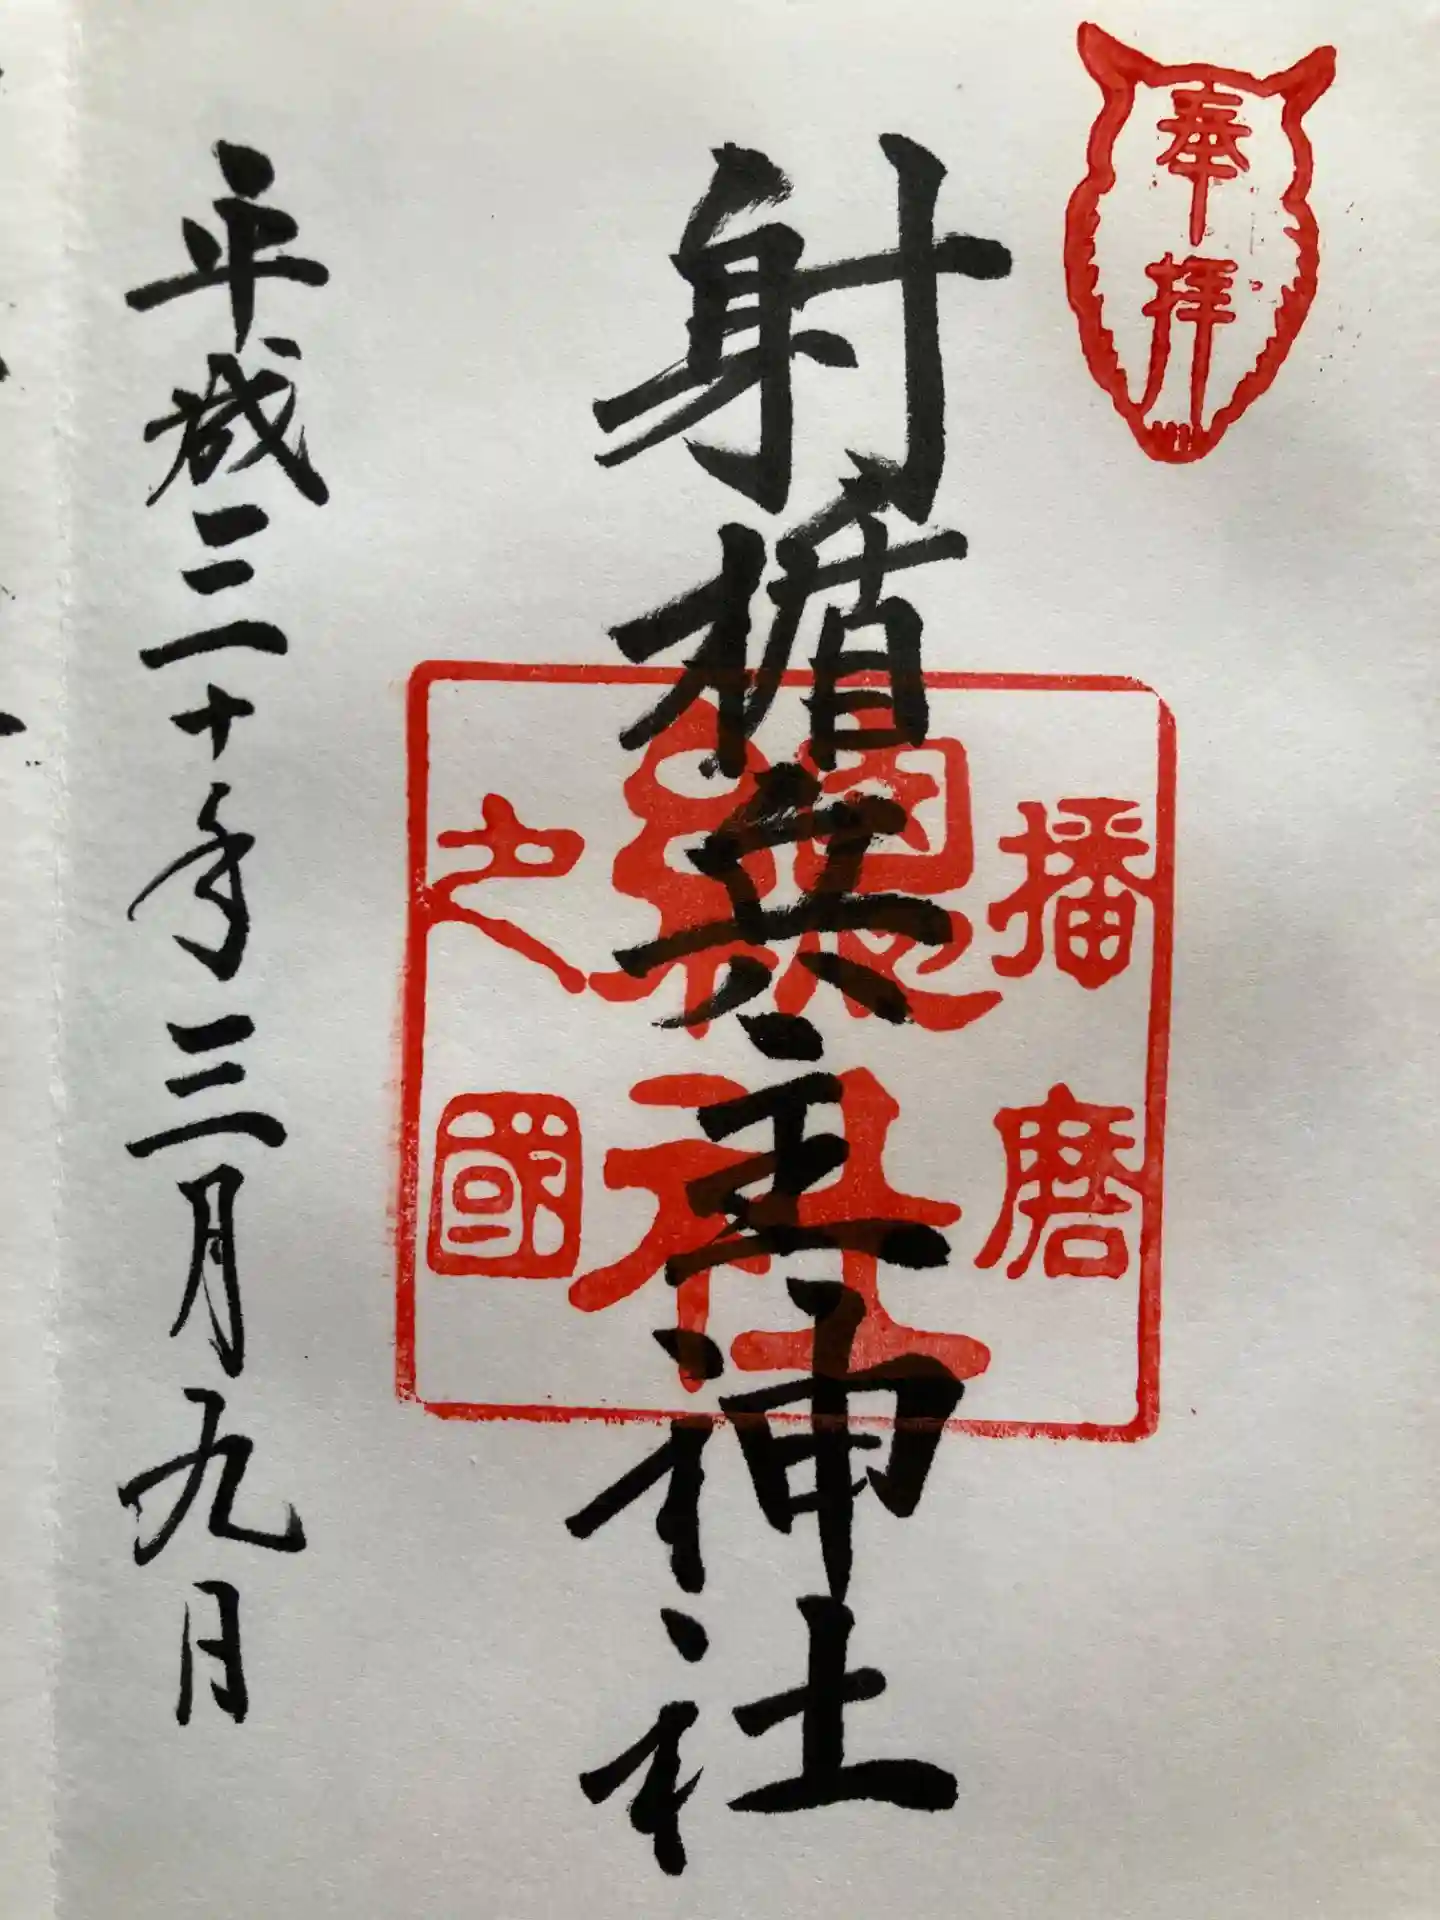 奉拝
射楯兵主神社
播磨
總社
之國
平成三十年三月九日